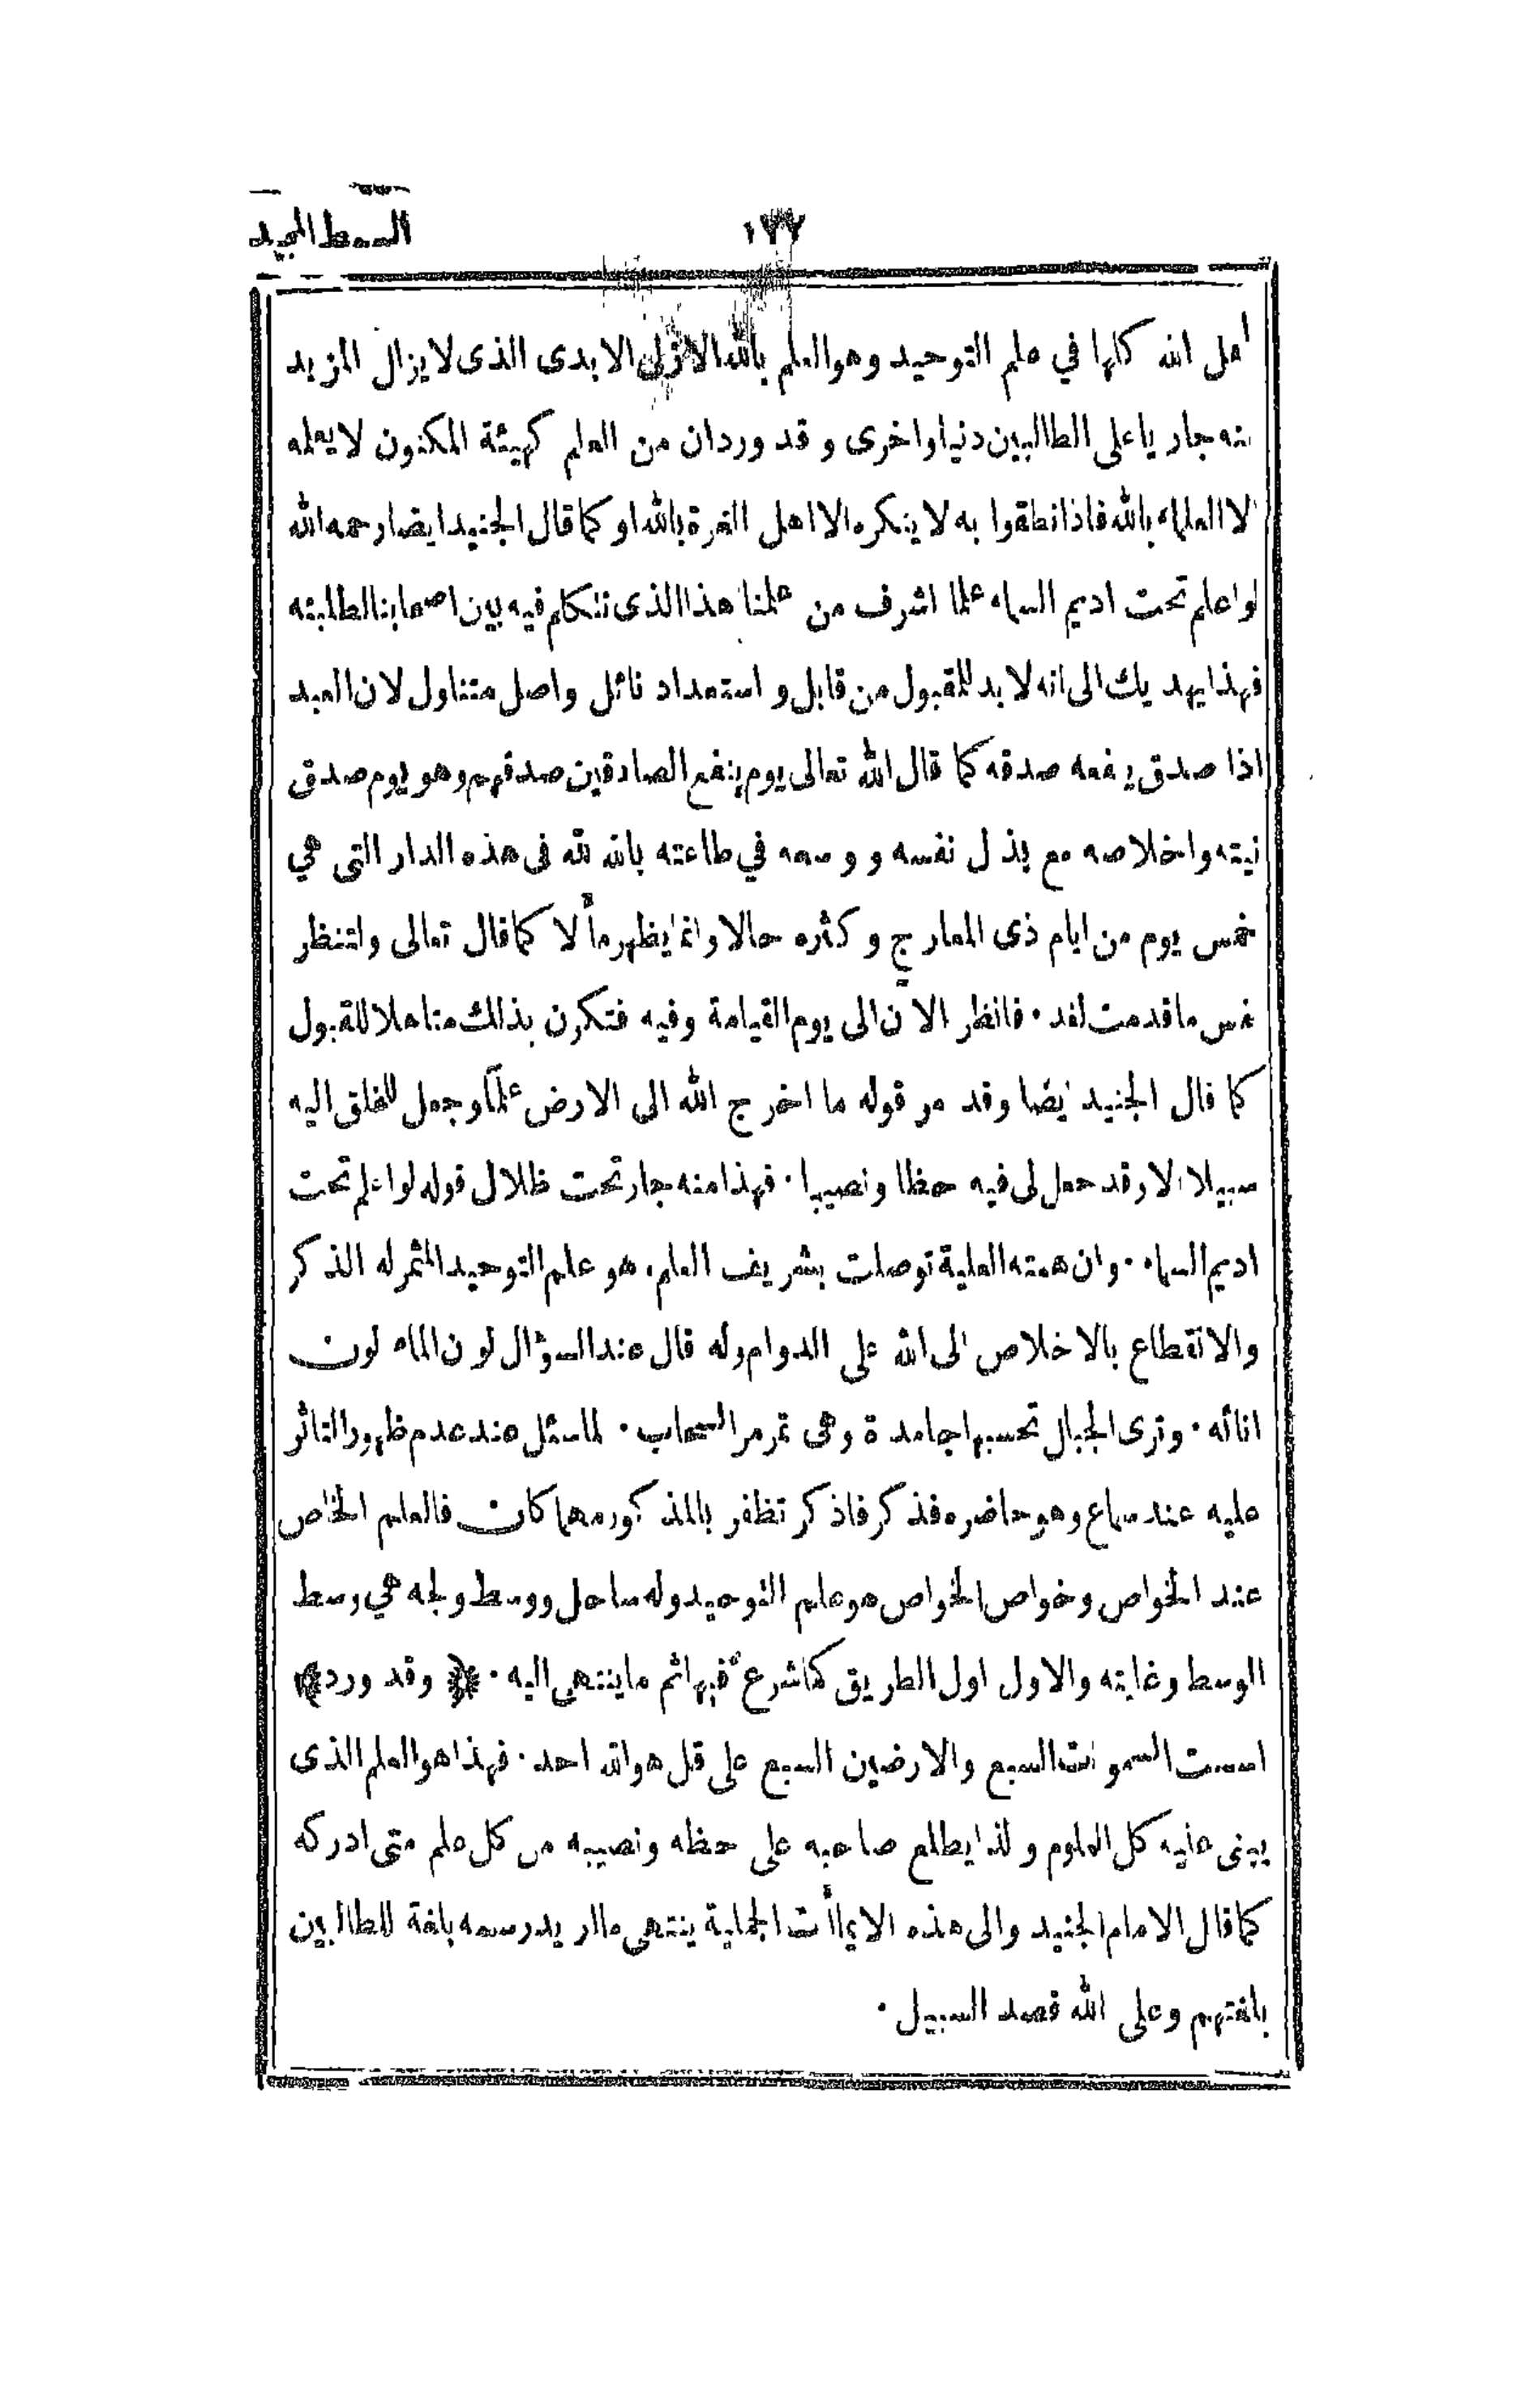 السمط المجيد
١٧٧
اهل الله كلها في علم التوحيد وهو العلم بالله الازلى الابدى الذى لايزال المزيد
منه جار ياعلى الطالبين دنيا واخرى و قد وردان من العلم كهيئة المكنون لايعلمه
الا العلماء بالله فاذا نطقوا به لا ينكره الا اهل الغرة بالله او كما قال الجنيد ايضا رحمه الله
لواعلم تحت اديم السماء علما اشرف من علمنا هذا الذى نتكلم فيه بين اصحابنا لطلبته
فهذا يهد يك الى انه لا بد للمقبول من قابل و استعداد نائل واصل متناول لان العبد
اذا صدق ينفعه صدقه كما قال الله تعالى يوم ينفع الصادقين صدقهم وهو يوم صدق
نيته واخلاصه مع بذل نفسه و وسعه في طاعته بالله لله فى هذه الدار التى هي
خمس يوم من ايام ذى المعارج و كثره حالا وانما يظهر مآلا كما قال تعالى ولتنظر
نفس ماقدمت لغد ٠ فانظر الان الى يوم القيامة وفيه فتكون بذلك متاهلا للقبول
كما قال الجنيد ايضا وقد مر قوله ما اخرج الله الى الارض علما وجعل للخلق اليه
سبيلا الا وقد جعل لى فيه حظا ونصيبا ٠ فهذا منه جار تحت ظلال قوله لو اعلم تحت
اديم السماء ٠ وان همته العلية توصلت بشريف العلم، هو علم التوحيد المثمر له الذكر
والانقطاع بالاخلاص الى الله على الدوام وله قال عند السؤال لون الماء لون
انائه ٠ وترى الجبال تحسبها جامدة وهى تمر مر السحاب ٠ لما سئل عند عدم ظهور التاثر
عليه عند سماع وهو حاضره فذكر فاذكر تظفر بالمذكور مهما كان فالعلم الخاص
عند الخواص وخواص الخواص هو علم التوحيد وله ساحل ووسط ولجه هي وسط
الوسط وغايته والاول اول الطريق كما شرع فيها ثم ما ينتهى اليه ٠ ﴿ وقد ورد ﴾
اسست السموات السبع والارضين السبع على قل هو الله احد ٠ فهذا هو العلم الذى
يبنى عليه كل العلوم و لذا يطلع صاحبه على حظه ونصيبه من كل علم متى ادركه
كما قال الامام الجنيد والى هذه الايماآت الجملية ينتهى ما اريد رسمه بلغة للطالبين
بلغتهم وعلى الله قصد السبيل ٠